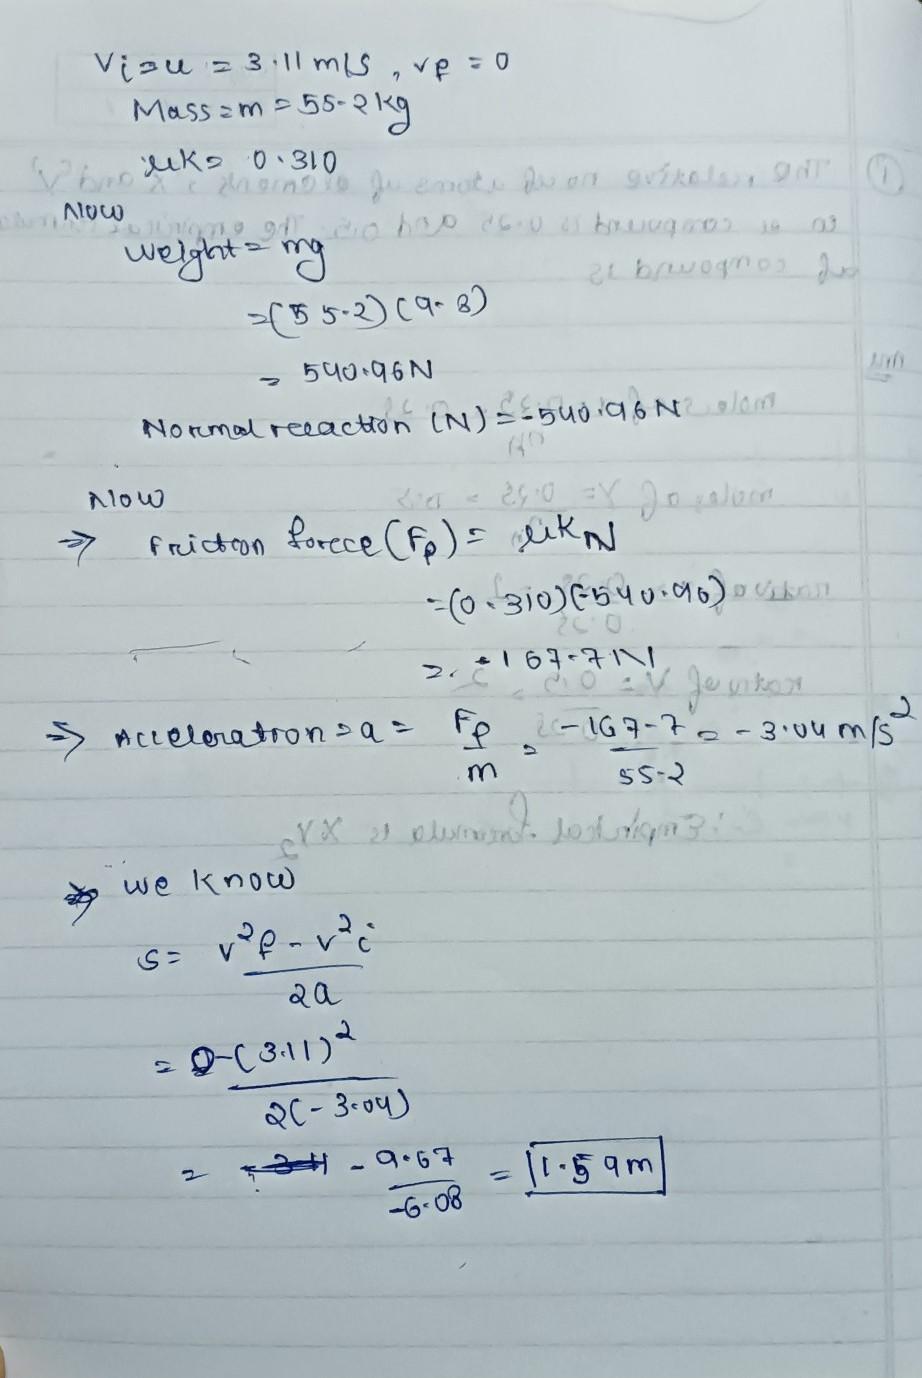 Vi=u = 3.11 m/s, vf = 0
Mass=m = 55.2 kg
μK= 0.310
Now
weight= mg
=(55.2) (9.8)
= 540.96N
Normal recaction (N) = -540.96 N
Now
⇒ Friction force (Ff) = μKN
=(0.310)(-540.96)
= -167.7N
⇒ Acceleration=a = Ff/m = -167.7/55.2 = -3.04 m/s²
⇒ we know
S= v²f - v²i / 2a
= 0-(3.11)² / 2(-3.04)
= -9.67 / -6.08 = 1.59m